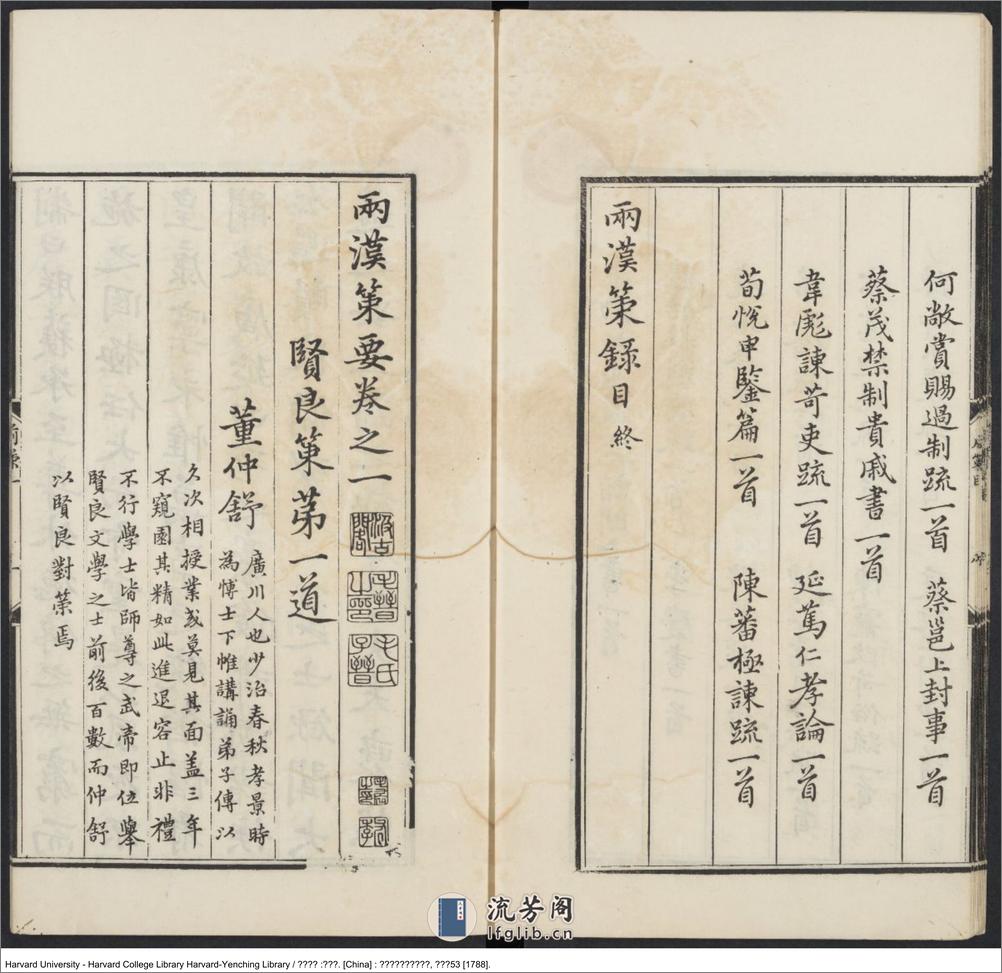 何敞賞賜過制疏一首　蔡邕上封事一首
蔡茂禁制貴戚書一首
韋彪諫苛吏疏一首　延篤仁孝論一首
荀悅申鑒篇一首　陳蕃極諫疏一首
兩漢策錄目終
兩漢策要卷之一
汲古閣
毛晉之印
毛氏子晉
賢良策第一道
董仲舒
廣川人也少治春秋孝景時
為博士下帷講誦弟子傳以
久次相授業或莫見其面盖三年
不窺園其精如此進退容止非禮
不行學士皆師尊之武帝即位舉
賢良文學之士前後百數而仲舒
以賢良對策焉
流芳阁
lfglib.cn
Harvard University - Harvard College Library Harvard-Yenching Library / ???? :???. [China] : ??????????, ???53 [1788].